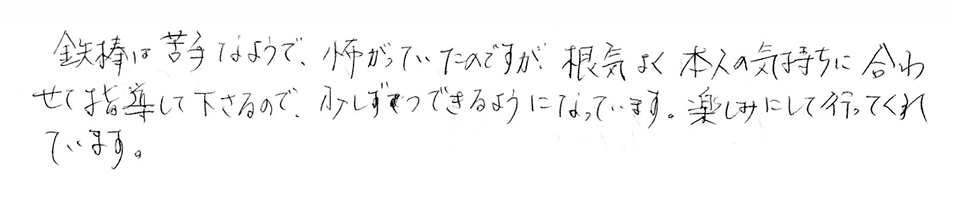 鉄棒は苦手なようで、怖がっていたのですが、根気よく本人の気持ちに合わ
せて指導して下さるので、少しずつできるようになっています。楽しみにして行ってくれ
ています。